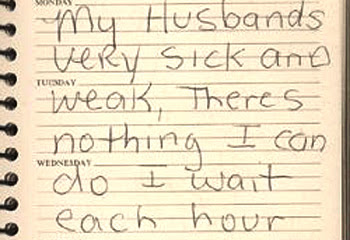 MONDAY
My Husbands
very sick and
TUESDAY
weak, Theres
nothing I can
WEDNESDAY
do I wait
each hour